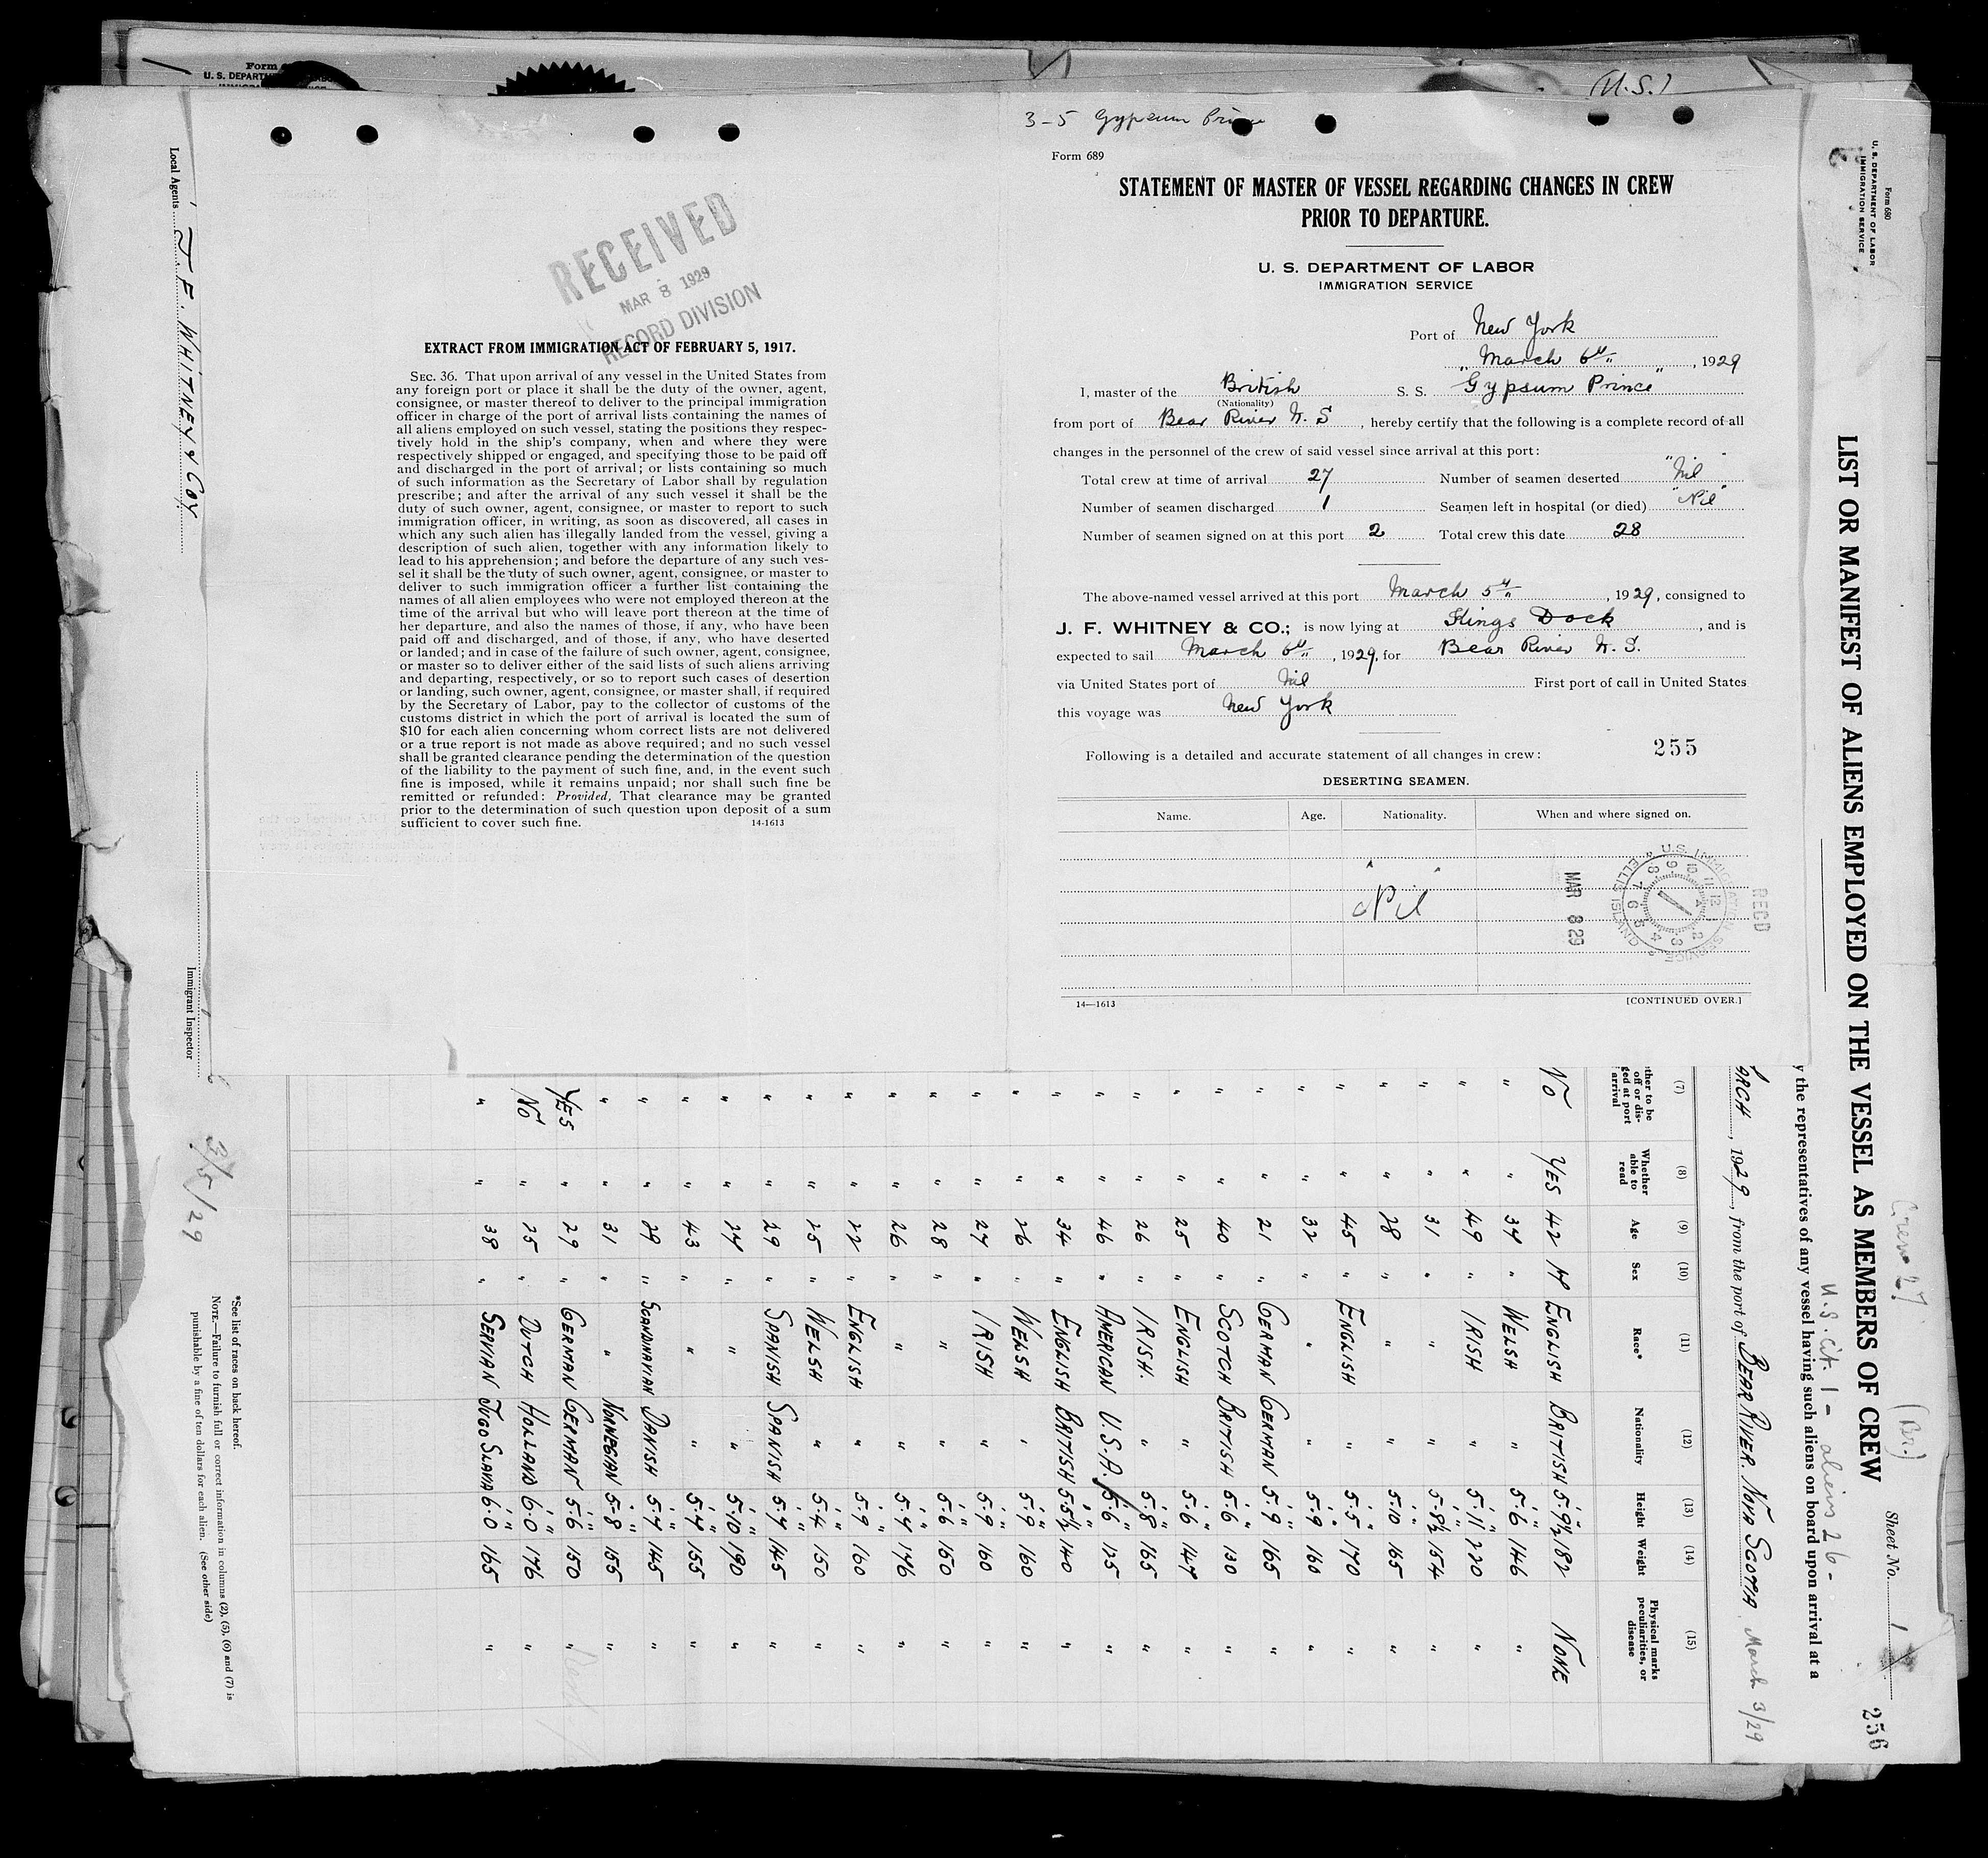 Form
U. S. DEPARTM
(U.S.)
3-5 Gypsum Prince
Form 689
STATEMENT OF MASTER OF VESSEL REGARDING CHANGES IN CREW
PRIOR TO DEPARTURE.
U. S. DEPARTMENT OF LABOR
IMMIGRATION SERVICE
Port of New York
March 6th, 1929
I, master of the British S. S. "Gypsum Prince"
(Nationality)
from port of Bear River N. S, hereby certify that the following is a complete record of all
changes in the personnel of the crew of said vessel since arrival at this port:
Total crew at time of arrival 27 Number of seamen deserted "Nil"
Number of seamen discharged 1 Seamen left in hospital (or died) "Nil"
Number of seamen signed on at this port 2 Total crew this date 28
The above-named vessel arrived at this port March 5th, 1929, consigned to
J. F. WHITNEY & CO.; is now lying at Kings Dock, and is
expected to sail March 6th, 1929, for Bear River N. S.
via United States port of Nil First port of call in United States
this voyage was New York
Following is a detailed and accurate statement of all changes in crew: 255
DESERTING SEAMEN.
Name. Age. Nationality. When and where signed on.
"Nil"
U.S. IMMIGRATION SERVICE ELLIS ISLAND
REC'D
MAR 8 29
14—1613 [CONTINUED OVER.]
RECEIVED
MAR 8 1929
RECORD DIVISION
EXTRACT FROM IMMIGRATION ACT OF FEBRUARY 5, 1917.
SEC. 36. That upon arrival of any vessel in the United States from
any foreign port or place it shall be the duty of the owner, agent,
consignee, or master thereof to deliver to the principal immigration
officer in charge of the port of arrival lists containing the names of
all aliens employed on such vessel, stating the positions they respec-
tively hold in the ship's company, when and where they were
respectively shipped or engaged, and specifying those to be paid off
and discharged in the port of arrival; or lists containing so much
of such information as the Secretary of Labor shall by regulation
prescribe; and after the arrival of any such vessel it shall be the
duty of such owner, agent, consignee, or master to report to such
immigration officer, in writing, as soon as discovered, all cases in
which any such alien has illegally landed from the vessel, giving a
description of such alien, together with any information likely to
lead to his apprehension; and before the departure of any such ves-
sel it shall be the duty of such owner, agent, consignee, or master to
deliver to such immigration officer a further list containing the
names of all alien employees who were not employed thereon at the
time of the arrival but who will leave port thereon at the time of
her departure, and also the names of those, if any, who have been
paid off and discharged, and of those, if any, who have deserted
or landed; and in case of the failure of such owner, agent, consignee,
or master so to deliver either of the said lists of such aliens arriving
and departing, respectively, or so to report such cases of desertion
or landing, such owner, agent, consignee, or master shall, if required
by the Secretary of Labor, pay to the collector of customs of the
customs district in which the port of arrival is located the sum of
$10 for each alien concerning whom correct lists are not delivered
or a true report is not made as above required; and no such vessel
shall be granted clearance pending the determination of the question
of the liability to the payment of such fine, and, in the event such
fine is imposed, while it remains unpaid; nor shall such fine be
remitted or refunded: Provided, That clearance may be granted
prior to the determination of such question upon deposit of a sum
sufficient to cover such fine. 14-1613
Form 680
U. S. DEPARTMENT OF LABOR
IMMIGRATION SERVICE
Crew 27 (Br.)
U.S. Cit. 1 - aliens 26 -
Sheet No. 1
256
LIST OR MANIFEST OF ALIENS EMPLOYED ON THE VESSEL AS MEMBERS OF CREW
y the representatives of any vessel having such aliens on board upon arrival at a
ARCH, 1929, from the port of BEAR RIVER. NOVA SCOTIA March 3/29
(7) (8) (9) (10) (11) (12) (13) (14) (15)
ther to be off or dis- ged at port arrival
Whether able to read
Age Sex Race* Nationality Height Weight
Physical marks peculiarities, or disease
NO YES 42 M ENGLISH BRITISH 5'.9½" 182 NONE
" " 34 " WELSH " 5'.6" 146 "
" " 49 " IRISH " 5'.11" 220 "
" " 31 " " " 5'.8½" 154 "
" " 28 " " " 5.10 165 "
" " 45 " ENGLISH " 5.5" 170 "
" " 32 " " " 5'.9" 160 "
" " 21 " GERMAN GERMAN 5'.9" 165 "
" " 40 " SCOTCH BRITISH 5'.6" 130 "
" " 25 " ENGLISH " 5'.6" 147 "
" " 26 " IRISH. " 5'.8" 165 "
" " 46 " AMERICAN U.S.A. 5'.6" 125 "
" " 34 " ENGLISH BRITISH 5'.5½" 140 "
" " 26 " WELSH " 5'.9" 160 "
" " 27 " IRISH " 5'.9" 160 "
" " 28 " " " 5'.6" 150 "
" " 26 " " " 5'.7" 176 "
" " 22 " ENGLISH " 5'.9" 160 "
" " 25 " WELSH " 5'.4" 150 "
" " 29 " SPANISH SPANISH 5'.7" 145 "
" " 27 " " " 5'.10" 190 "
" " 43 " " " 5'.7" 155 "
" " 29 " SCANDNAVIAN DANISH 5'.7" 145 "
" " 31 " " NORWEGIAN 5'.8" 155 "
YES " 29 " GERMAN GERMAN 5'.6" 150 "
NO " 25 " DUTCH HOLLAND 6'.0" 176 "
" " 38 " SERVIAN JUGO SLAVIA 6'.0" 165 "
*See list of races on back hereof.
NOTE.—Failure to furnish full or correct information in columns (2), (5), (6) and (7) is
punishable by a fine of ten dollars for each alien. (See other side)
Local Agents J F. WHITNEY & COY
Immigrant Inspector
3/5/29